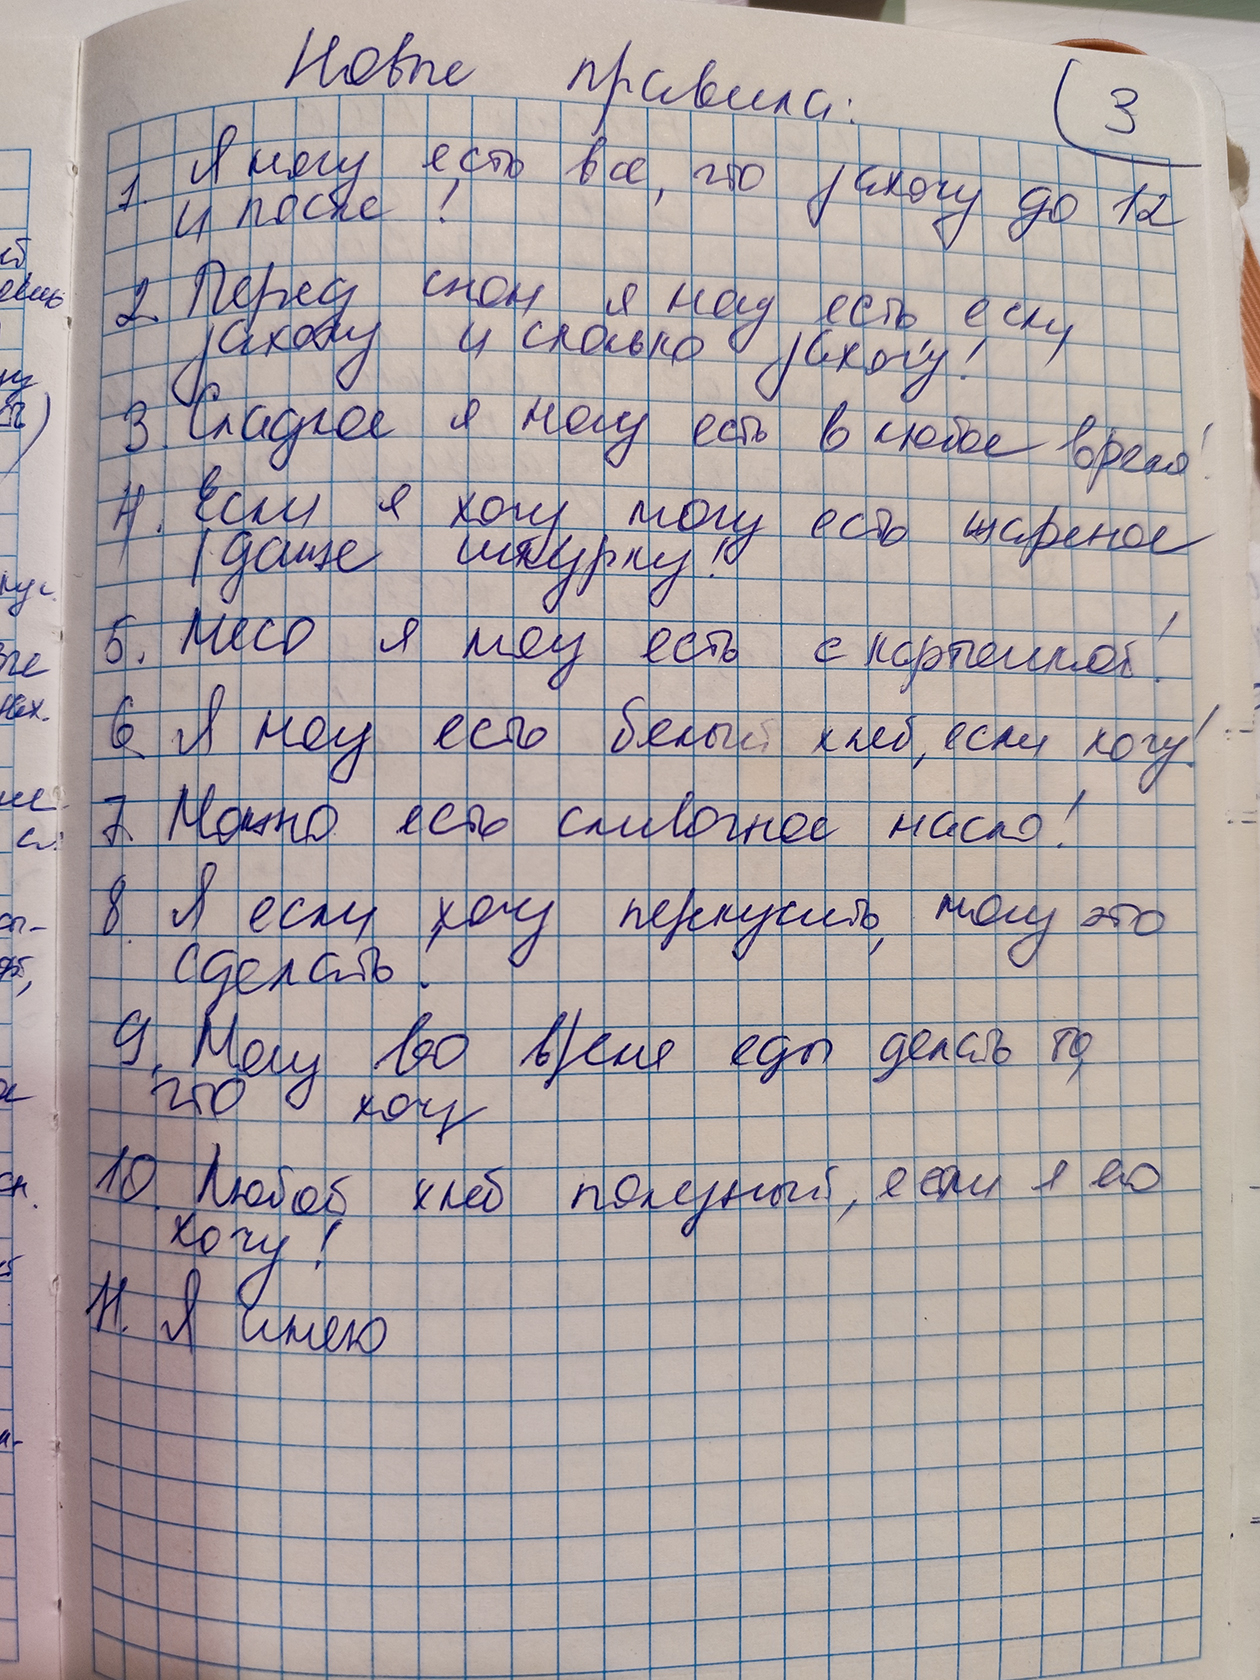 Новые правила:
3
1. Я могу есть все, что захочу до 12
и после!
2. Перед сном я могу есть если
захочу и сколько захочу!
3. Сладкое я могу есть в любое время!
4. Если я хочу могу есть жареное
(даже шкурку!
5. Мясо я могу есть с картошкой!
6. Я могу есть белый хлеб, если хочу!
7. Можно есть сливочное масло!
8. Я если хочу перекусить, могу это
сделать.
9. Могу во время еды делать то,
что хочу
10. Любой хлеб полезный, если я его
хочу!
11. Я имею